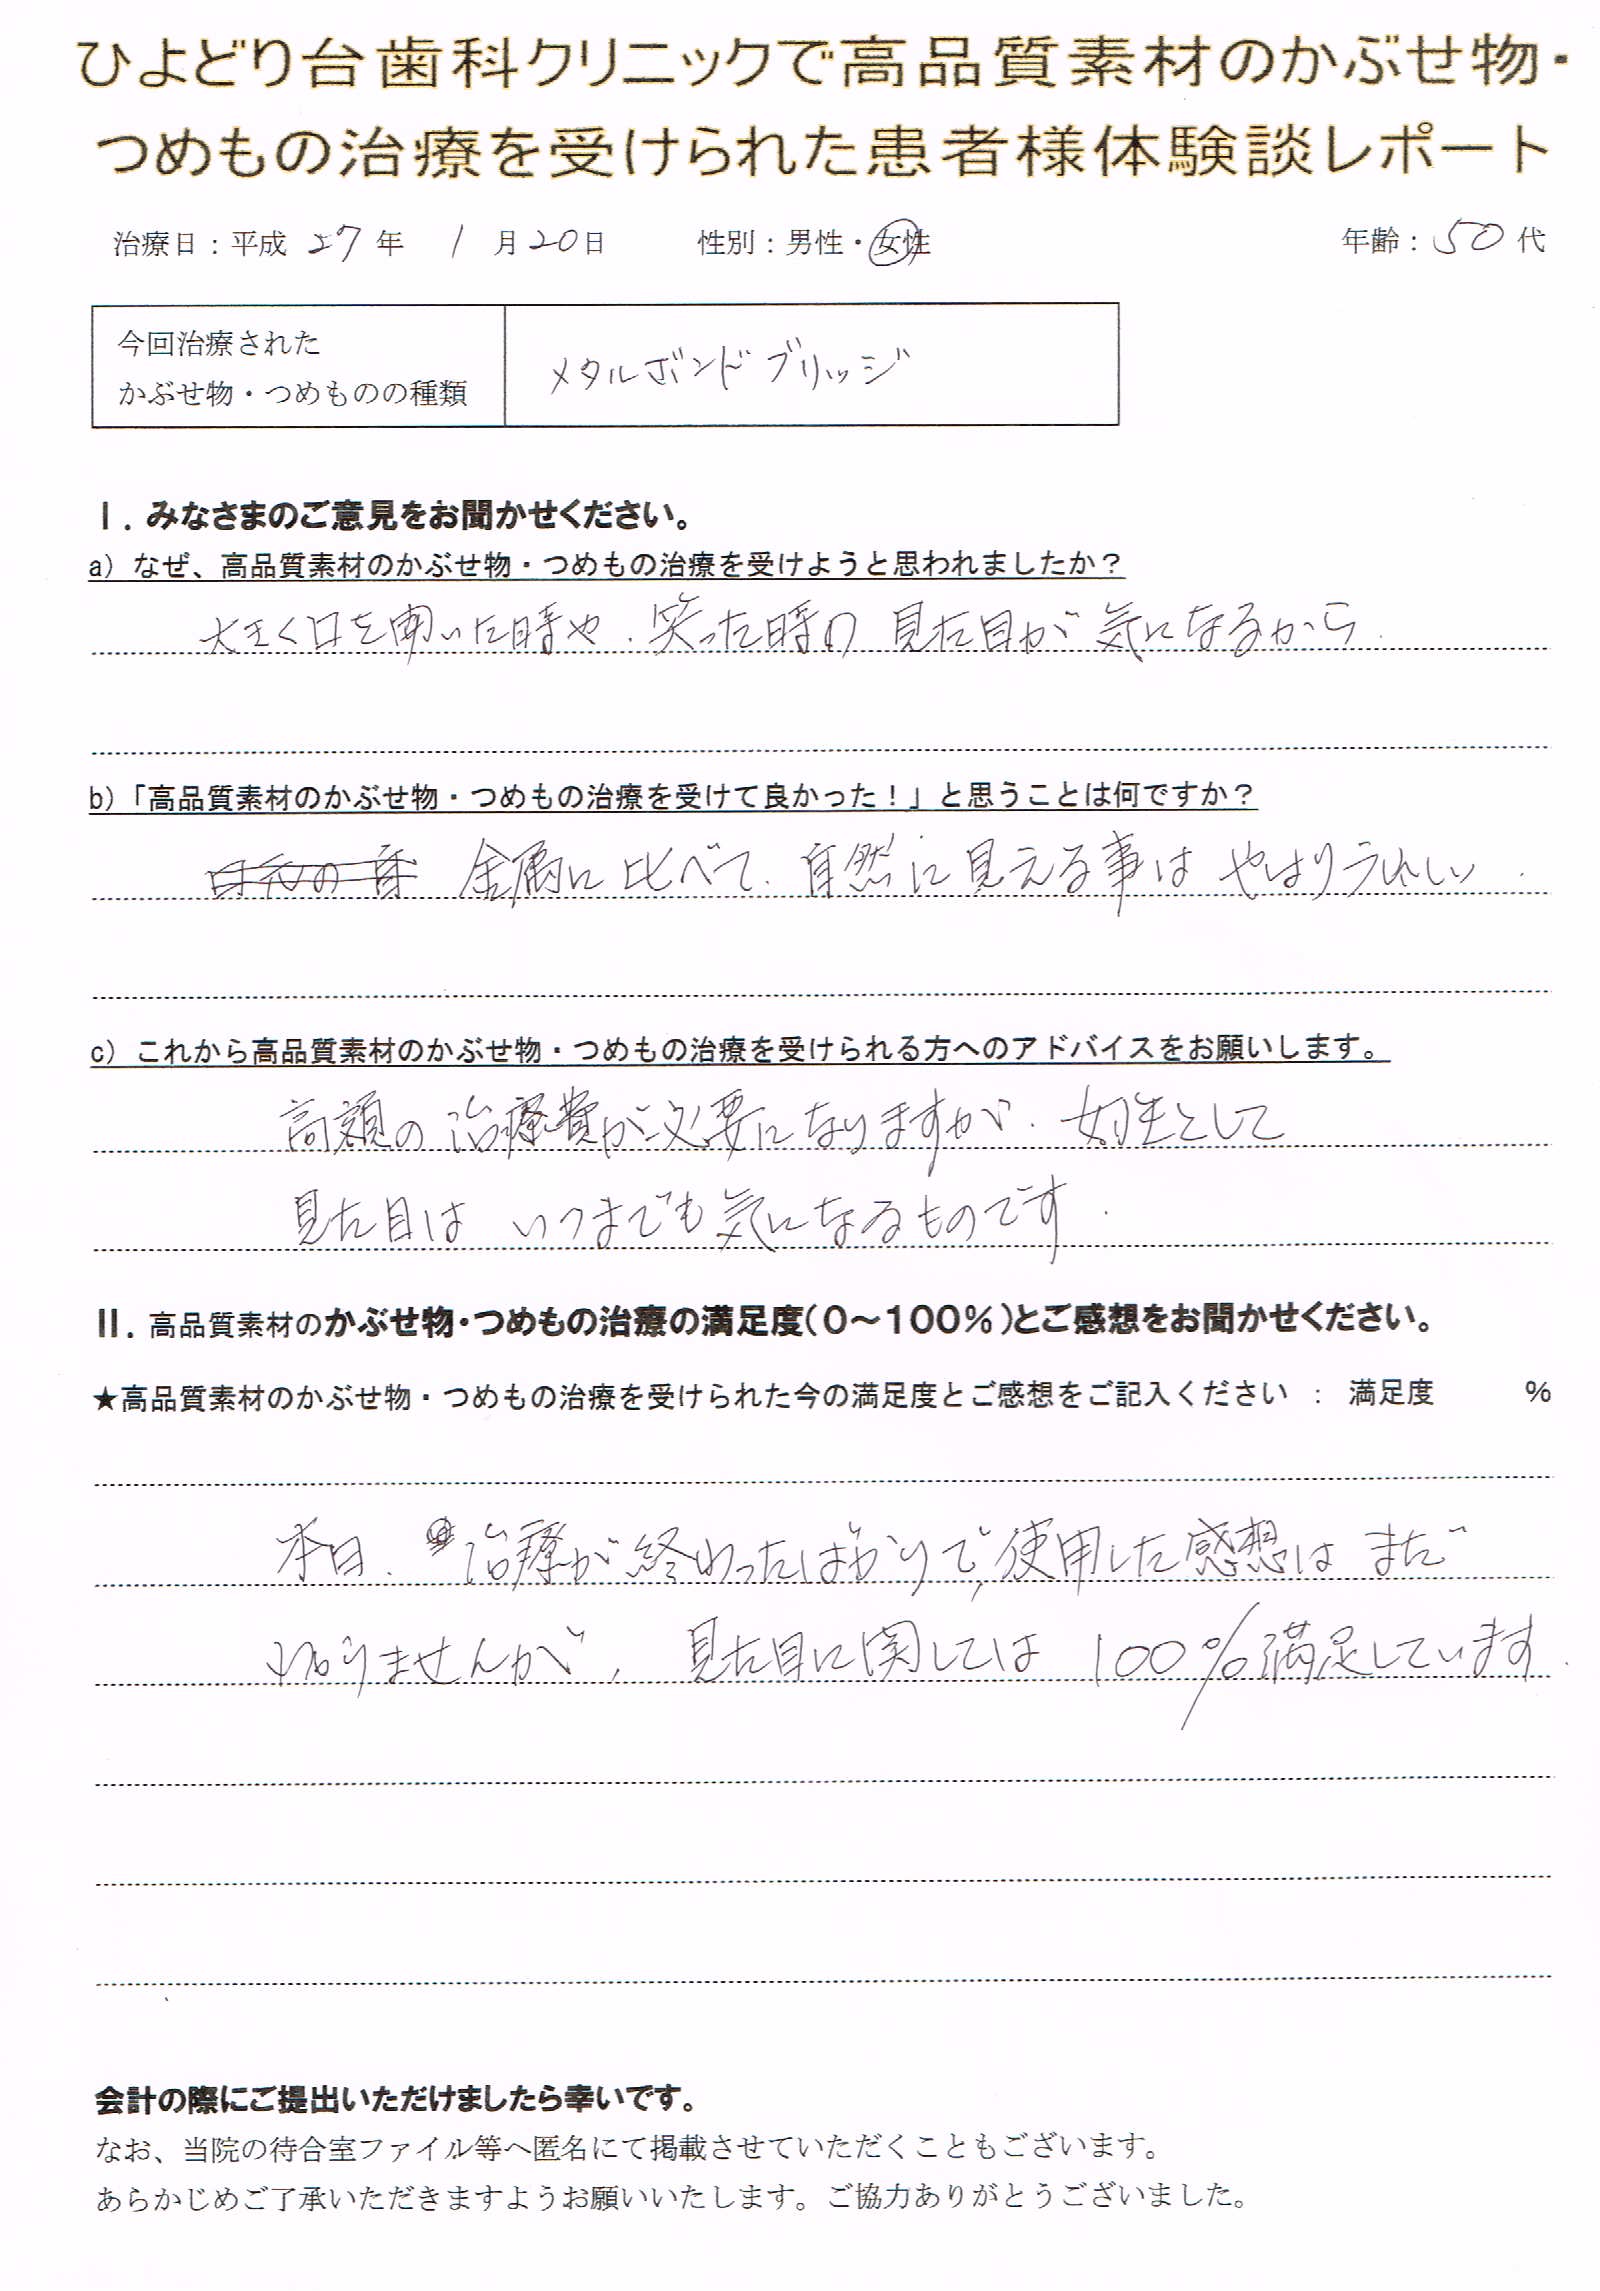 ひよどり台歯科クリニックで高品質素材のかぶせ物・
つめもの治療を受けられた患者様体験談レポート
治療日：平成 27 年 1 月 20 日 性別：男性・女性 年齢：50 代
今回治療された
かぶせ物・つめものの種類
メタルボンドブリッジ
Ⅰ．みなさまのご意見をお聞かせください。
a）なぜ、高品質素材のかぶせ物・つめもの治療を受けようと思われましたか？
大きく口を開いた時や、笑った時の見た目が気になるから．
b）「高品質素材のかぶせ物・つめもの治療を受けて良かった！」と思うことは何ですか？
金属に比べて、自然に見える事はやはりうれしい．
c）これから高品質素材のかぶせ物・つめもの治療を受けられる方へのアドバイスをお願いします。
高額の治療費が必要になりますが、女性として
見た目はいつまでも気になるものです．
Ⅱ．高品質素材のかぶせ物・つめもの治療の満足度（０～１００％）とご感想をお聞かせください。
★高品質素材のかぶせ物・つめもの治療を受けられた今の満足度とご感想をご記入ください ： 満足度 ％
本日、治療が終わったばかりで、使用した感想はまだ
わかりませんが、見た目に関しては100%満足しています．
会計の際にご提出いただけましたら幸いです。
なお、当院の待合室ファイル等へ匿名にて掲載させていただくこともございます。
あらかじめご了承いただきますようお願いいたします。ご協力ありがとうございました。